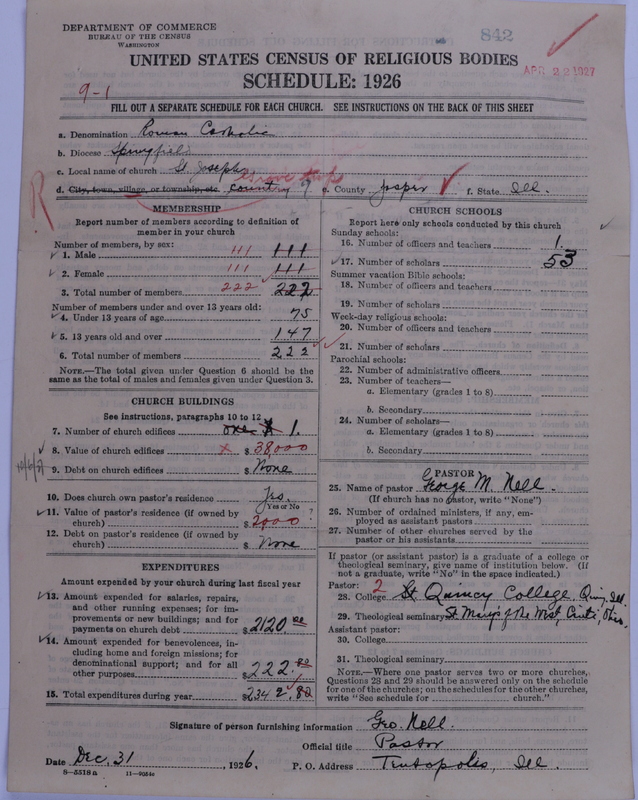 DEPARTMENT OF COMMERCE
BUREAU OF THE CENSUS
WASHINGTON
842
APR 22 1927
UNITED STATES CENSUS OF RELIGIOUS BODIES
SCHEDULE: 1926
9-1
FILL OUT A SEPARATE SCHEDULE FOR EACH CHURCH. SEE INSTRUCTIONS ON THE BACK OF THIS SHEET
a. Denomination Roman Catholic
b. Diocese Springfield
c. Local name of church St. Joseph
d. City, town, village, or township, etc. country e. County Jasper f. State Ill.
R
MEMBERSHIP
Report number of members according to definition of
member in your church
Number of members, by sex:
1. Male 111 111
2. Female 111 111
3. Total number of members 222 222
Number of members under and over 13 years old:
4. Under 13 years of age 75
5. 13 years old and over 147
6. Total number of members 222
NOTE.—The total given under Question 6 should be
same as the total of males and females given under Question 3.
CHURCH BUILDINGS
See instructions, paragraphs 10 to 12
7. Number of church edifices one 1.
8. Value of church edifices x $ 38,000
9. Debt on church edifices $ None
10. Does church own pastor's residence Yes.
Yes or No
11. Value of pastor's residence (if owned by
church) $ 2000 ?
12. Debt on pastor's residence (if owned by
church) $ None
EXPENDITURES
Amount expended by your church during last fiscal year
13. Amount expended for salaries, repairs,
and other running expenses; for im-
provements or new buildings; and for
payments on church debt $ 2120.00
14. Amount expended for benevolences, in-
cluding home and foreign missions; for
denominational support; and for all
other purposes $ 222.80
15. Total expenditures during year $ 2342.80
CHURCH SCHOOLS
Report here only schools conducted by this church
Sunday schools:
16. Number of officers and teachers 1.
17. Number of scholars 53
Summer vacation Bible schools:
18. Number of officers and teachers
19. Number of scholars
Week-day religious schools:
20. Number of officers and teachers
21. Number of scholars
Parochial schools:
22. Number of administrative officers
23. Number of teachers—
a. Elementary (grades 1 to 8)
b. Secondary
24. Number of scholars—
a. Elementary (grades 1 to 8)
b. Secondary
PASTOR
25. Name of pastor George M. Nell.
(If church has no pastor, write "None")
26. Number of ordained ministers, if any, em-
ployed as assistant pastors
27. Number of other churches served by the
pastor or his assistants
If pastor (or assistant pastor) is a graduate of a college or
theological seminary, give name of institution below. (If
not a graduate, write "No" in the space indicated.)
Pastor: 2
28. College St Quincy College, Quincy, Ill.
29. Theological seminary St Marys of the West, Cinti, Ohio.
Assistant pastor:
30. College
31. Theological seminary
NOTE.—Where one pastor serves two or more churches,
Questions 28 and 29 should be answered only on the schedule
for one of the churches; on the schedules for the other churches,
write "See schedule for church."
Signature of person furnishing information Geo. Nell.
Official title Pastor
Date Dec. 31, 1926. P. O. Address Teutopolis, Ill.
8—5518 a 11—9054a